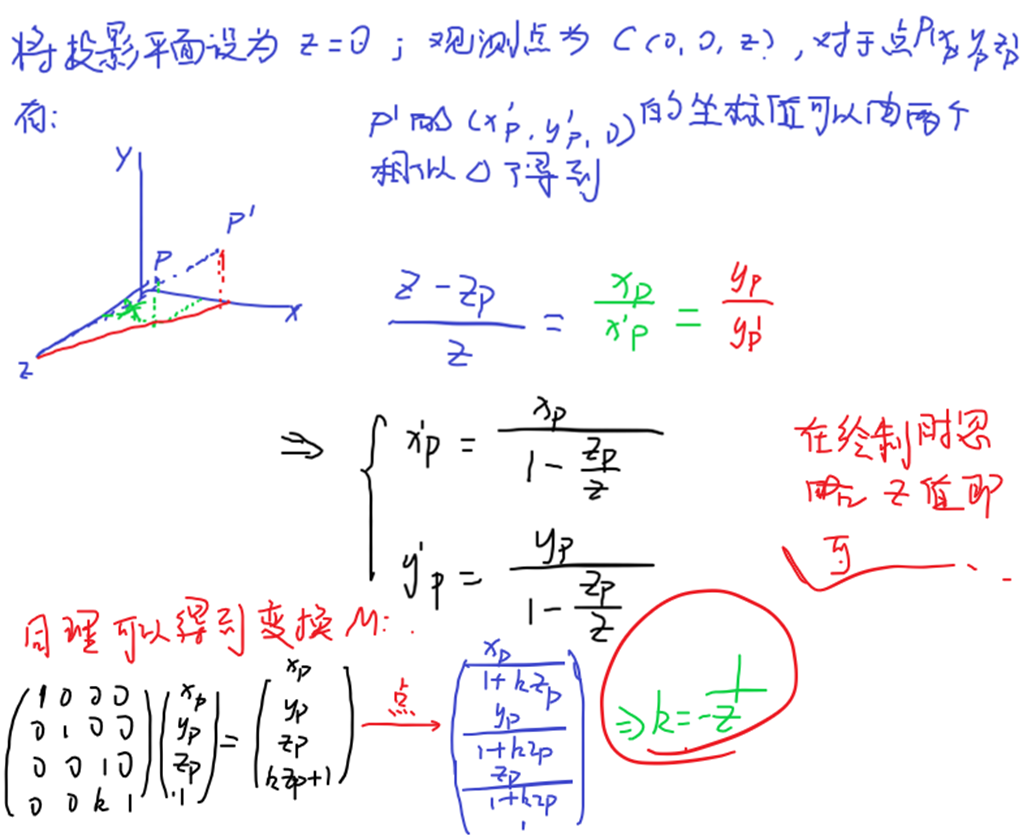 将投影平面设为 z=0 ; 观测点为 C(0, 0, z), 对于点P(xp, yp, zp)
有:
P'的(x'p, y'p, 0)的坐标值可以由两个
相似△得到
Y
P'
P
X
Z
(z - zp)/z = xp/x'p = yp/y'p
⇒ { x'p = xp/(1 - zp/z)
y'p = yp/(1 - zp/z)
在绘制时忽
略 z 值即
可
同理可以得到变换M:
(1 0 0 0; 0 1 0 0; 0 0 1 0; 0 0 k 1)(xp; yp; zp; 1) = (xp; yp; zp; kzp+1) 点→ (xp/(1+kzp); yp/(1+kzp); zp/(1+kzp); 1) ⇒ k = -1/z